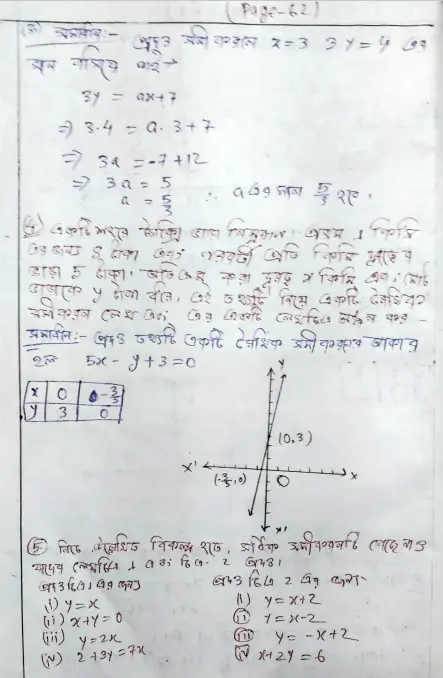 (Page-62)
(3) সমাধান:- প্রদত্ত সমীকরণে x=3 3 y=4 এর
মান বসিয়ে পাই→
3y = ax+7
⇒ 3.4 = a.3+7
⇒ 3a = -7+12
⇒ 3a = 5
a = 5/3 ∴ a এর মান 5/3 হবে।
(4) একটি শহরে টেক্সি ভাড়া নিম্নরূপ: প্রথম 1 কিমি
এর জন্য 8 টাকা এবং পরবর্তী প্রতি কিমি দূরত্বে
ভাড়া 5 টাকা। অতিক্রম করা দূরত্ব x কিমি এবং মোট
ভাড়াকে y টাকা ধরে, এই তথ্যটি নিয়ে একটি রৈখিক
সমীকরণ লেখ এবং এর একটি লেখচিত্র অঙ্কন কর-
সমাধান:- প্রদত্ত তথ্যটি একটি রৈখিক সমীকরণের আকার
হল 5x-y+3=0
x 0 -3/5
y 3 0
y
(0,3)
x' (-3/5,0) O x
x'
(5) নিচে উল্লেখিত বিকল্প হতে, সঠিক সমীকরণটি বেছে নাও
যাদের লেখচিত্র 1 এবং চিত্র 2 প্রদত্ত।
প্রদত্ত চিত্র 1 এর জন্য প্রদত্ত চিত্র 2 এর জন্য-
(i) y=x (i) y=x+2
(ii) x+y=0 (ii) y=x-2
(iii) y=2x (iii) y=-x+2
(iv) 2+3y=7x (iv) x+2y=6